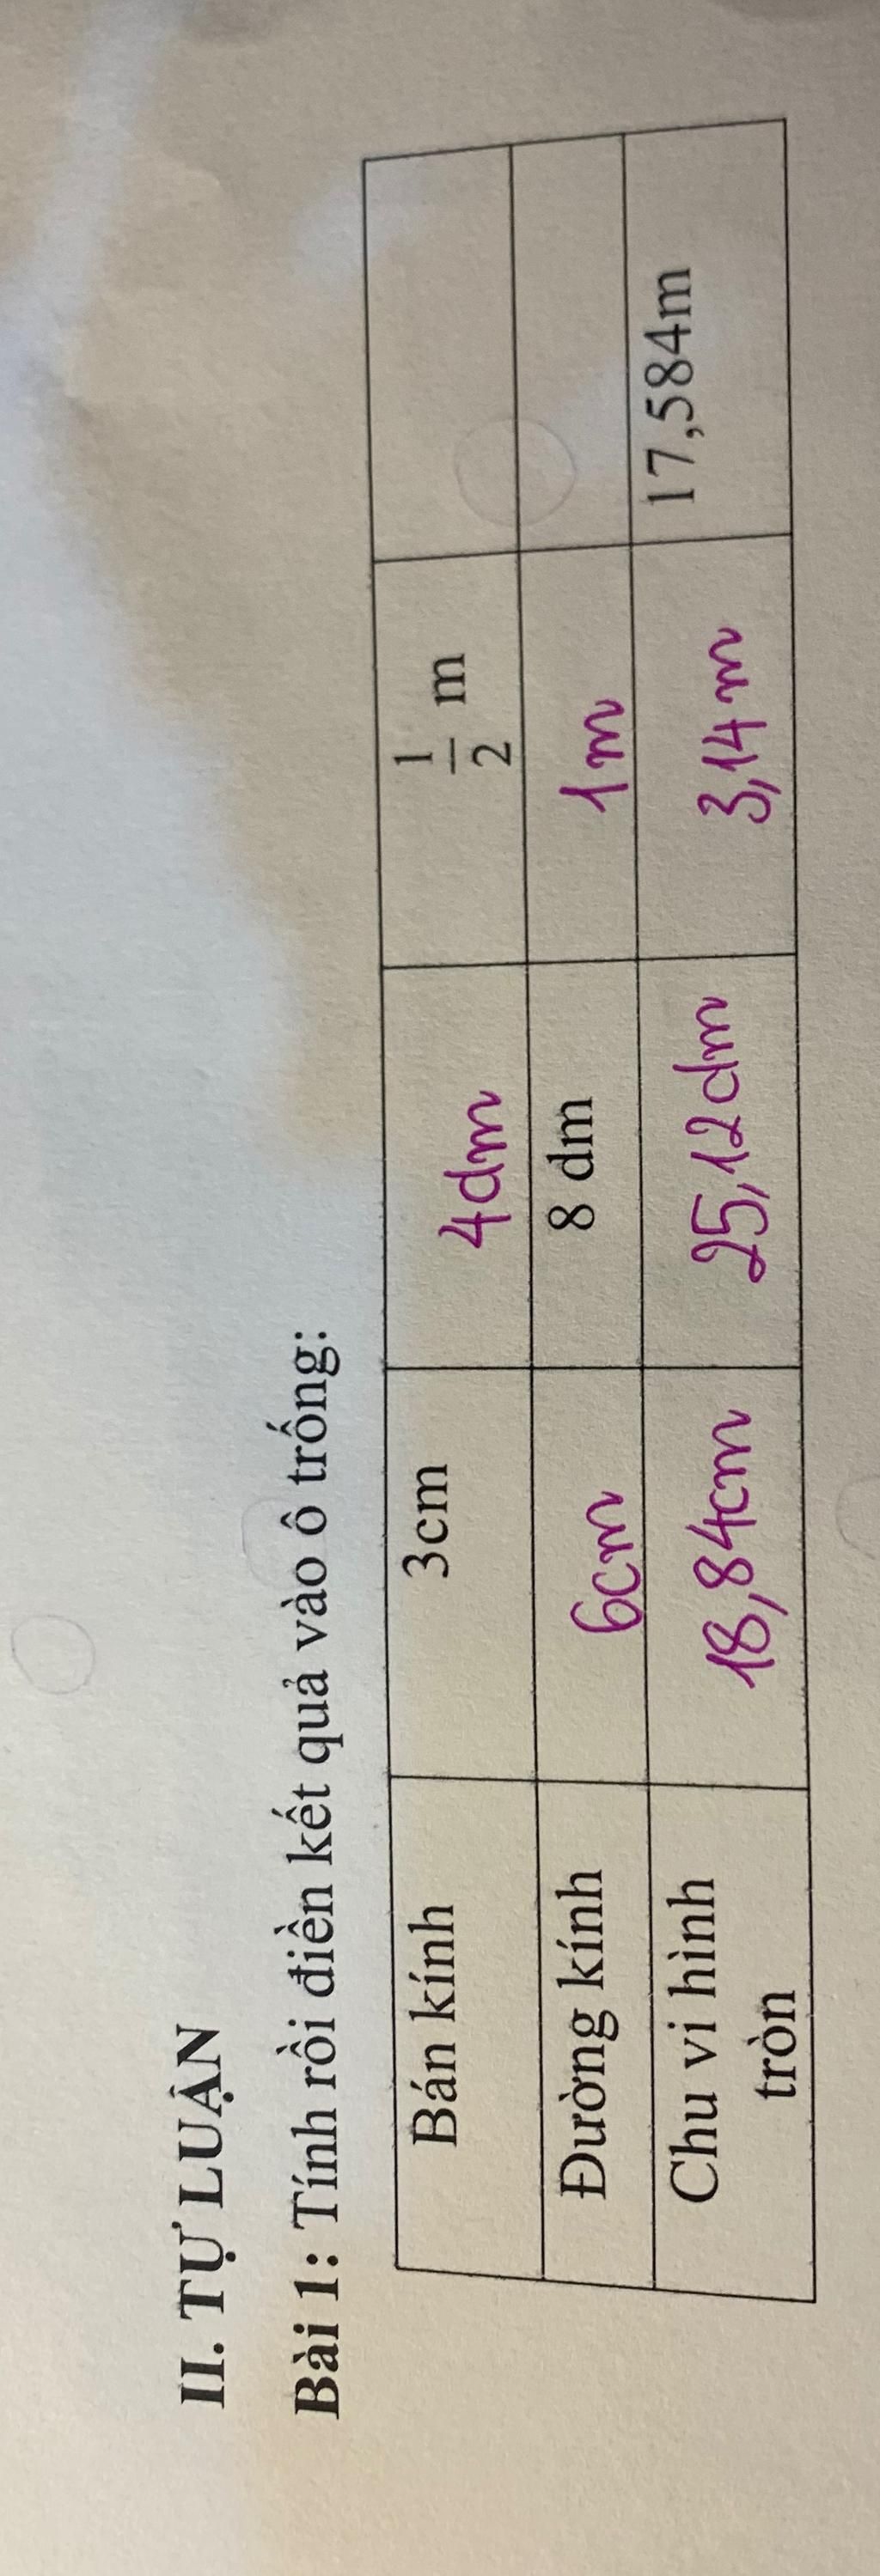 II. TỰ LUẬN
Bài 1: Tính rồi điền kết quả vào ô trống:
Bán kính 3cm 4dm 1/2 m
Đường kính 6cm 8 dm 1m
Chu vi hình tròn 18,84cm 25,12dm 3,14m 17,584m